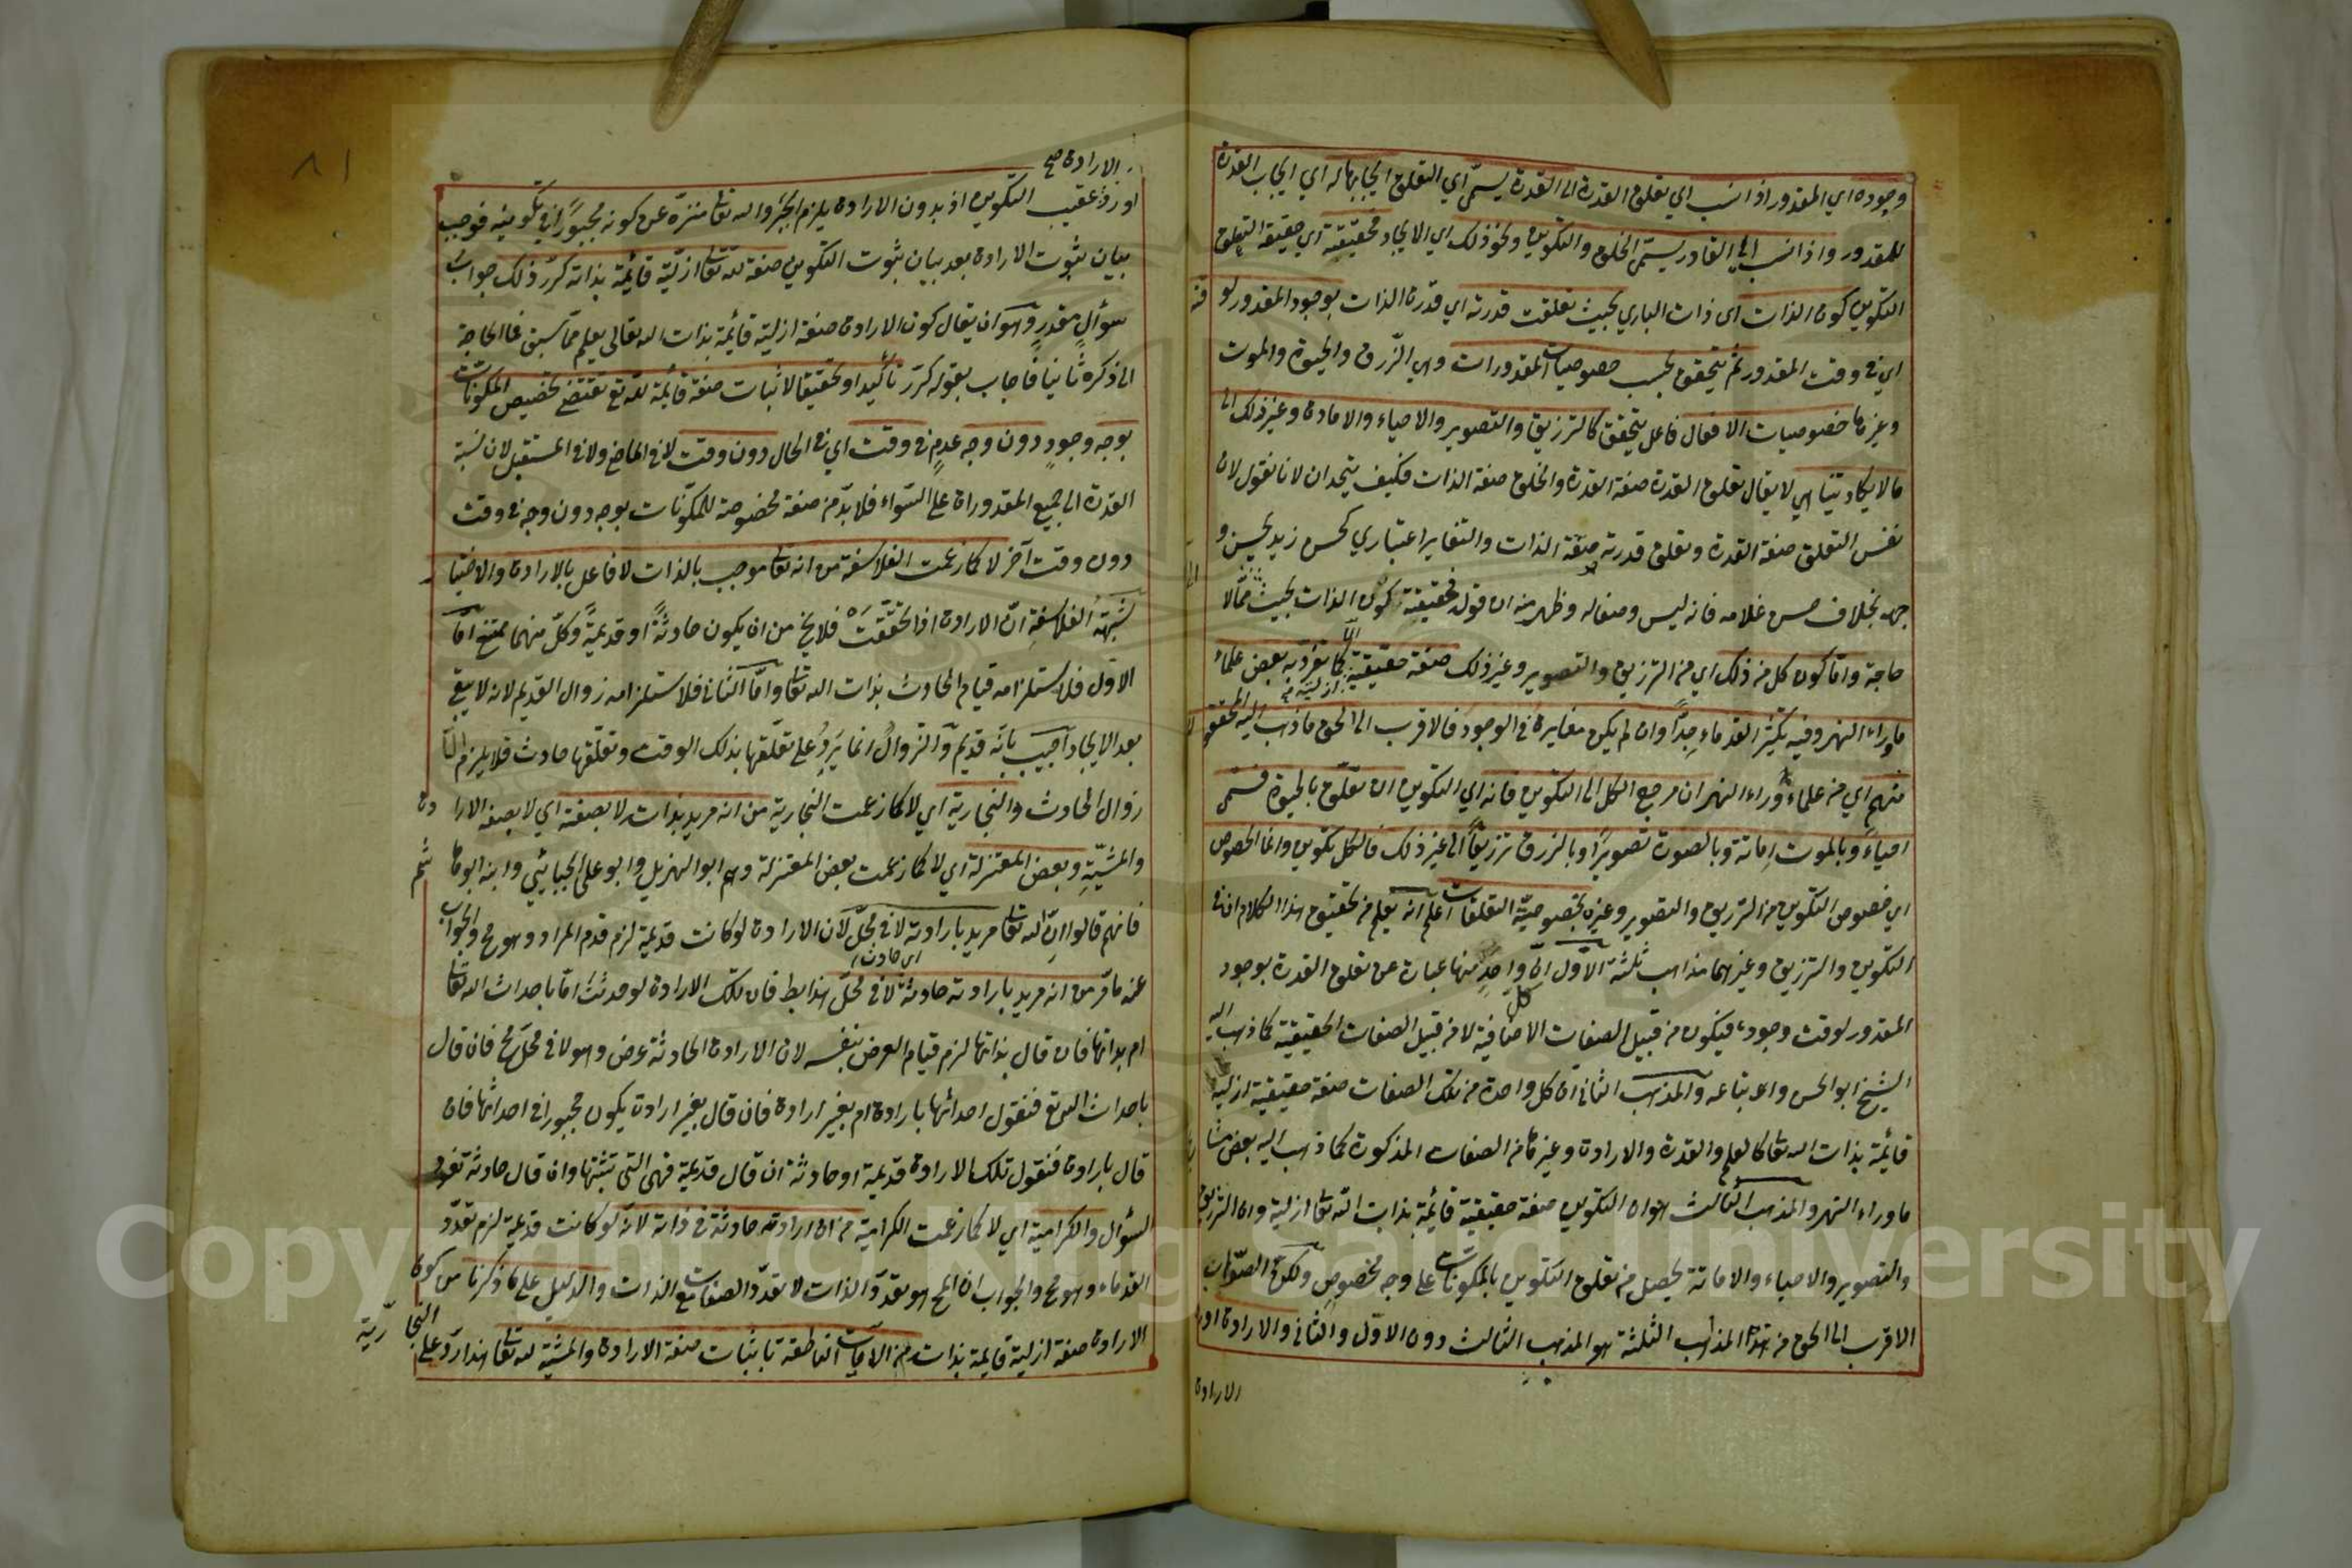 وجوده اي المقدور اذا نسب اي تعلق القدرة الى القدرة يسمى اي التعلق ايجابها له اي ايجاب القدرة
للمقدور واذا نسب الى القادر يسمى الخلق والتكوين ونحو ذلك اي الايجاد فحقيقته اي حقيقة التعلق
التكوين كون الذات اي ذات الباري بحيث تعلقت قدرته اي قدرة الذات بوجود المقدور لو قته
اي في وقت المقدور ثم يتحقق بحسب خصوصيات المقدورات وهي الرزق والحيوة والموت
وغيرها خصوصيات الافعال فاعل يتحقق كالترزيق والتصوير والاحياء والاماتة وغير ذلك الى
ما لا يكاد يتناهي لا يقال تعلق القدرة صفة القدرة والخلق صفة الذات فكيف يتحدان لانا نقول لان
نفس التعلق صفة القدرة وتعلق قدرته صفة الذات والتغاير اعتباري كحسن زيد بحسن و
جهه بخلاف حسن غلامه فانه ليس وصفا له وظهر منه ان قوله فحقيقته كون الذات بحيث مما لا الى
حاجة واما كون كل من ذلك اي من الترزيق والتصوير وغير ذلك صفة حقيقية ازلية فمما تفرد به بعض علماء
ماوراء النهر وفيه تكثير القدماء جدا وان لم يكن مغايرة في الوجود فالاقرب الى الحق ما ذهب اليه المحققو ن
منهم اي من علماء وراء النهر ان مرجع الكل الى التكوين فانه اي التكوين ان تعلق بالحيوة فسمى
احياء وبالموت اماتة وبالصورة تصويرا وبالرزق ترزيقا الى غير ذلك فالكل تكوين وانما الخصوص
اي خصوص التكوين من الترزيق والتصوير وغيره بخصوصية التعلقات اعلم انه يعلم من تحقيق هذا الكلام ان في
التكوين والترزيق وغيرهما مذاهب ثلثة الاول ان كل واحد منها عبارة عن تعلق القدرة بوجود
المقدور لوقت وجوده فيكون من قبيل الصفات الاضافية لا من قبيل الصفات الحقيقية كما ذهب اليه
الشيخ ابو الحسن واتباعه والمذهب الثاني ان كل واحدة من تلك الصفات صفة حقيقية ازلية
قائمة بذات الله تعا كالعلم والقدرة والارادة وغيرها من الصفات المذكورة كما ذهب اليه بعض مشا يخ
ماوراء النهر والمذهب الثالث هو ان التكوين صفة حقيقية قائمة بذات الله تعا ازلية وان الترزيق
والتصوير والاحياء والاماتة يحصل من تعلق التكوين بالمكونات على وجه مخصوص ولكن الصواب
الاقرب الى الحق من هذه المذاهب الثلثة هو المذهب الثالث دون الاول والثاني والارادة اور
الارادة
الارادة صح
اورد عقيب التكوين اذ بدون الارادة يلزم الجبر والله تعا منزه عن كونه مجبورا في تكوينه فوجب
بيان ثبوت الارادة بعد بيان ثبوت التكوين صفة لله تعا ازلية قائمة بذاته كرر ذلك جواب
سؤال مقدر وهو ان يقال كون الارادة صفة ازلية قائمة بذات الله تعالى يعلم مما سبق فما الحاجة
الى ذكره ثانيا فاجاب بقوله كرر تأكيدا وتحقيقا لاثبات صفة قائمة لله تع تقتضي تخصيص المكونات
بوجه وجود دون وجه عدم في وقت اي في الحال دون وقت لا في الماضي ولا في المستقبل لان نسبة
القدرة الى جميع المقدورات على السواء فلا بد من صفة مخصوصة للمكونات بوجه دون وجه في وقت
دون وقت آخر لا كما زعمت الفلاسفة من انه تعا موجب بالذات لا فاعل بالارادة والاختيا ر
شبهة الفلاسفة ان الارادة اذا تحققت فلا يخ من ان يكون حادثة او قديمة وكل منهما ممتنع اما
الاول فلاستلزامه قيام الحادث بذات الله تعا واما الثاني فلاستلزامه زوال القديم لانه لا يبقى
بعد الايجاد اجيب بانه قديم والزوال انما يرد على تعلقها بذلك الوقت وتعلقها حادث فلا يلزم الا
زوال الحادث والنجارية اي لا كما زعمت النجارية من انه مريد بذات لا بصفة اي لا بصفة الارا دة
والمشية وبعض المعتزلة اي لا كما زعمت بعض المعتزلة وهم ابو الهزيل وابو على الجبائي وابنه ابو ها شم
فانهم قالوا ان الله تعا مريد بارادته لا في محل لان الارادة لو كانت قديمة لزم قدم المراد وهو مح والجواب
اي حادث
عنه ما مر من انه مريد بارادته حادثة لا في محل هذا بط فان تلك الارادة لو حدثت اما باحداث الله تعا
ام بذاتها فان قال بذاتها لزم قيام العرض بنفسه لان الارادة الحادثة عرض وهو لا في محل مح فان قال
باحداث الله تع فنقول احدثها بارادة ام بغير ارادة فان قال بغير ارادة يكون مجبورا في احداثها فان
قال بارادة فنقول تلك الارادة قديمة او حادثة ان قال قديمة فهي التي تثبتها وان قال حادثة تعود
السؤال والكرامية اي لا كما زعمت الكرامية من ان ارادته حادثة في ذاته لانه لو كانت قديمة لزم تعدد
القدماء وهو مح والجواب ان المح هو تعدد الذات لا تعدد الصفات مع الذات والدليل على ما ذكرنا من كون
الارادة صفة ازلية قايمة بذات من الآيات الناطقة باثبات صفة الارادة والمشية لله تعا هذا رد على النجا رية